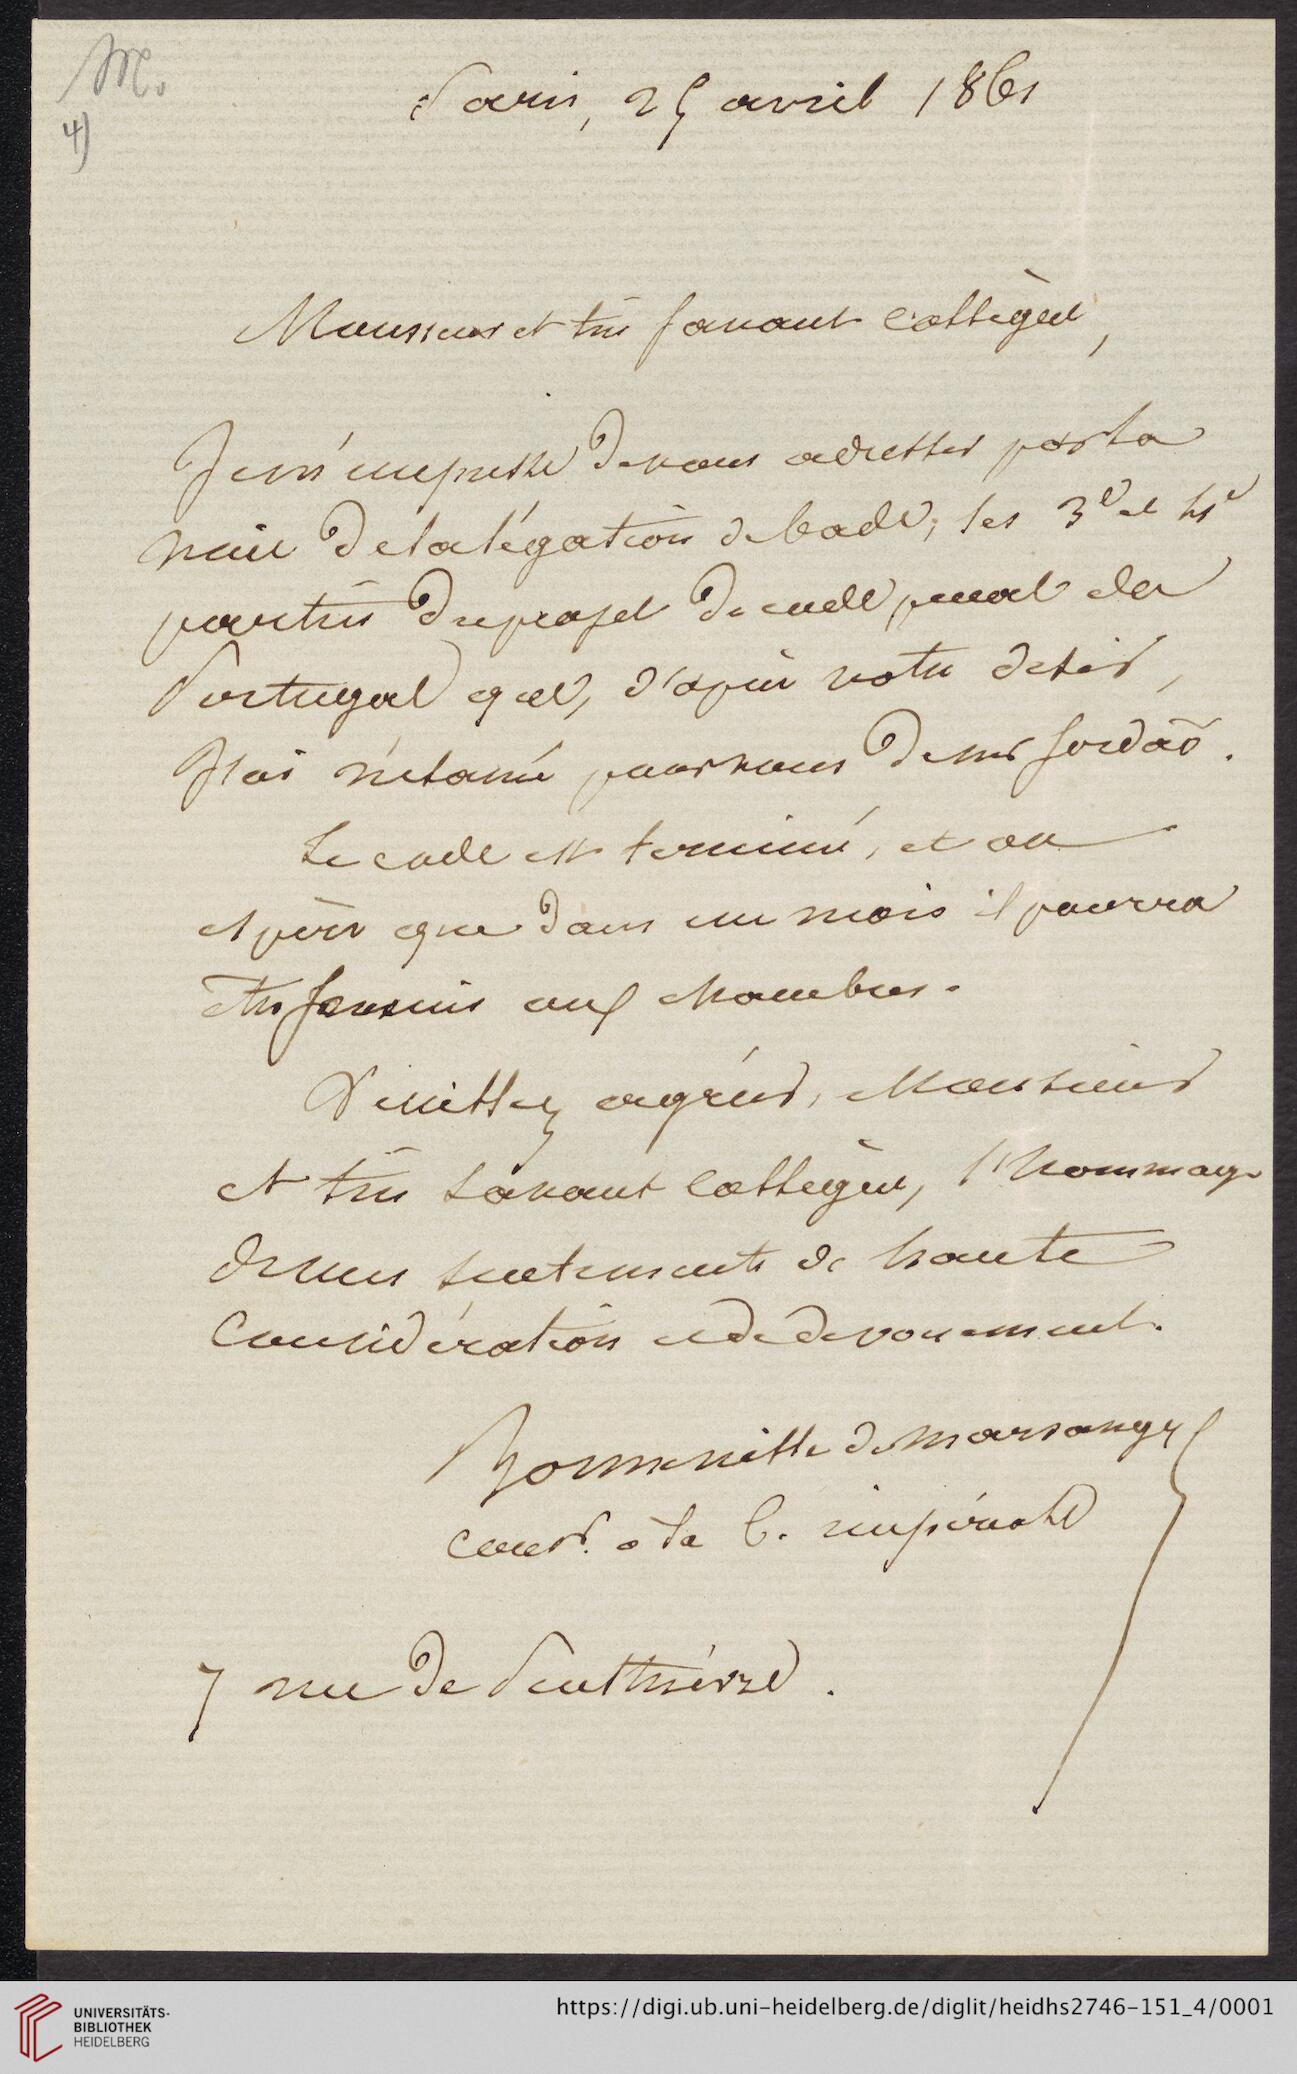 M.
4)
Paris, 25 avril 1861
Monsieur et très savant collègue,
Je m'empresse de vous adresser par la
voie de la légation de bade, les 3e et 4e
parties du projet de code penal de
Portugal que, d'après votre desir,
j'ai réclamé pour vous de mr Jordaõ.
Le code est terminé, et on
espère que dans un mois il pourra
être soumis aux chambres.
Veuillez agréer, Monsieur
et très savant collègue, l'hommage
de mes sentiments de haute
considération et de devouement.
Bonneville de Marsangy
cons.r à la C. impériale
7 rue de Penthièvre.
UNIVERSITÄTS-
BIBLIOTHEK
HEIDELBERG
https://digi.ub.uni-heidelberg.de/diglit/heidhs2746-151_4/0001